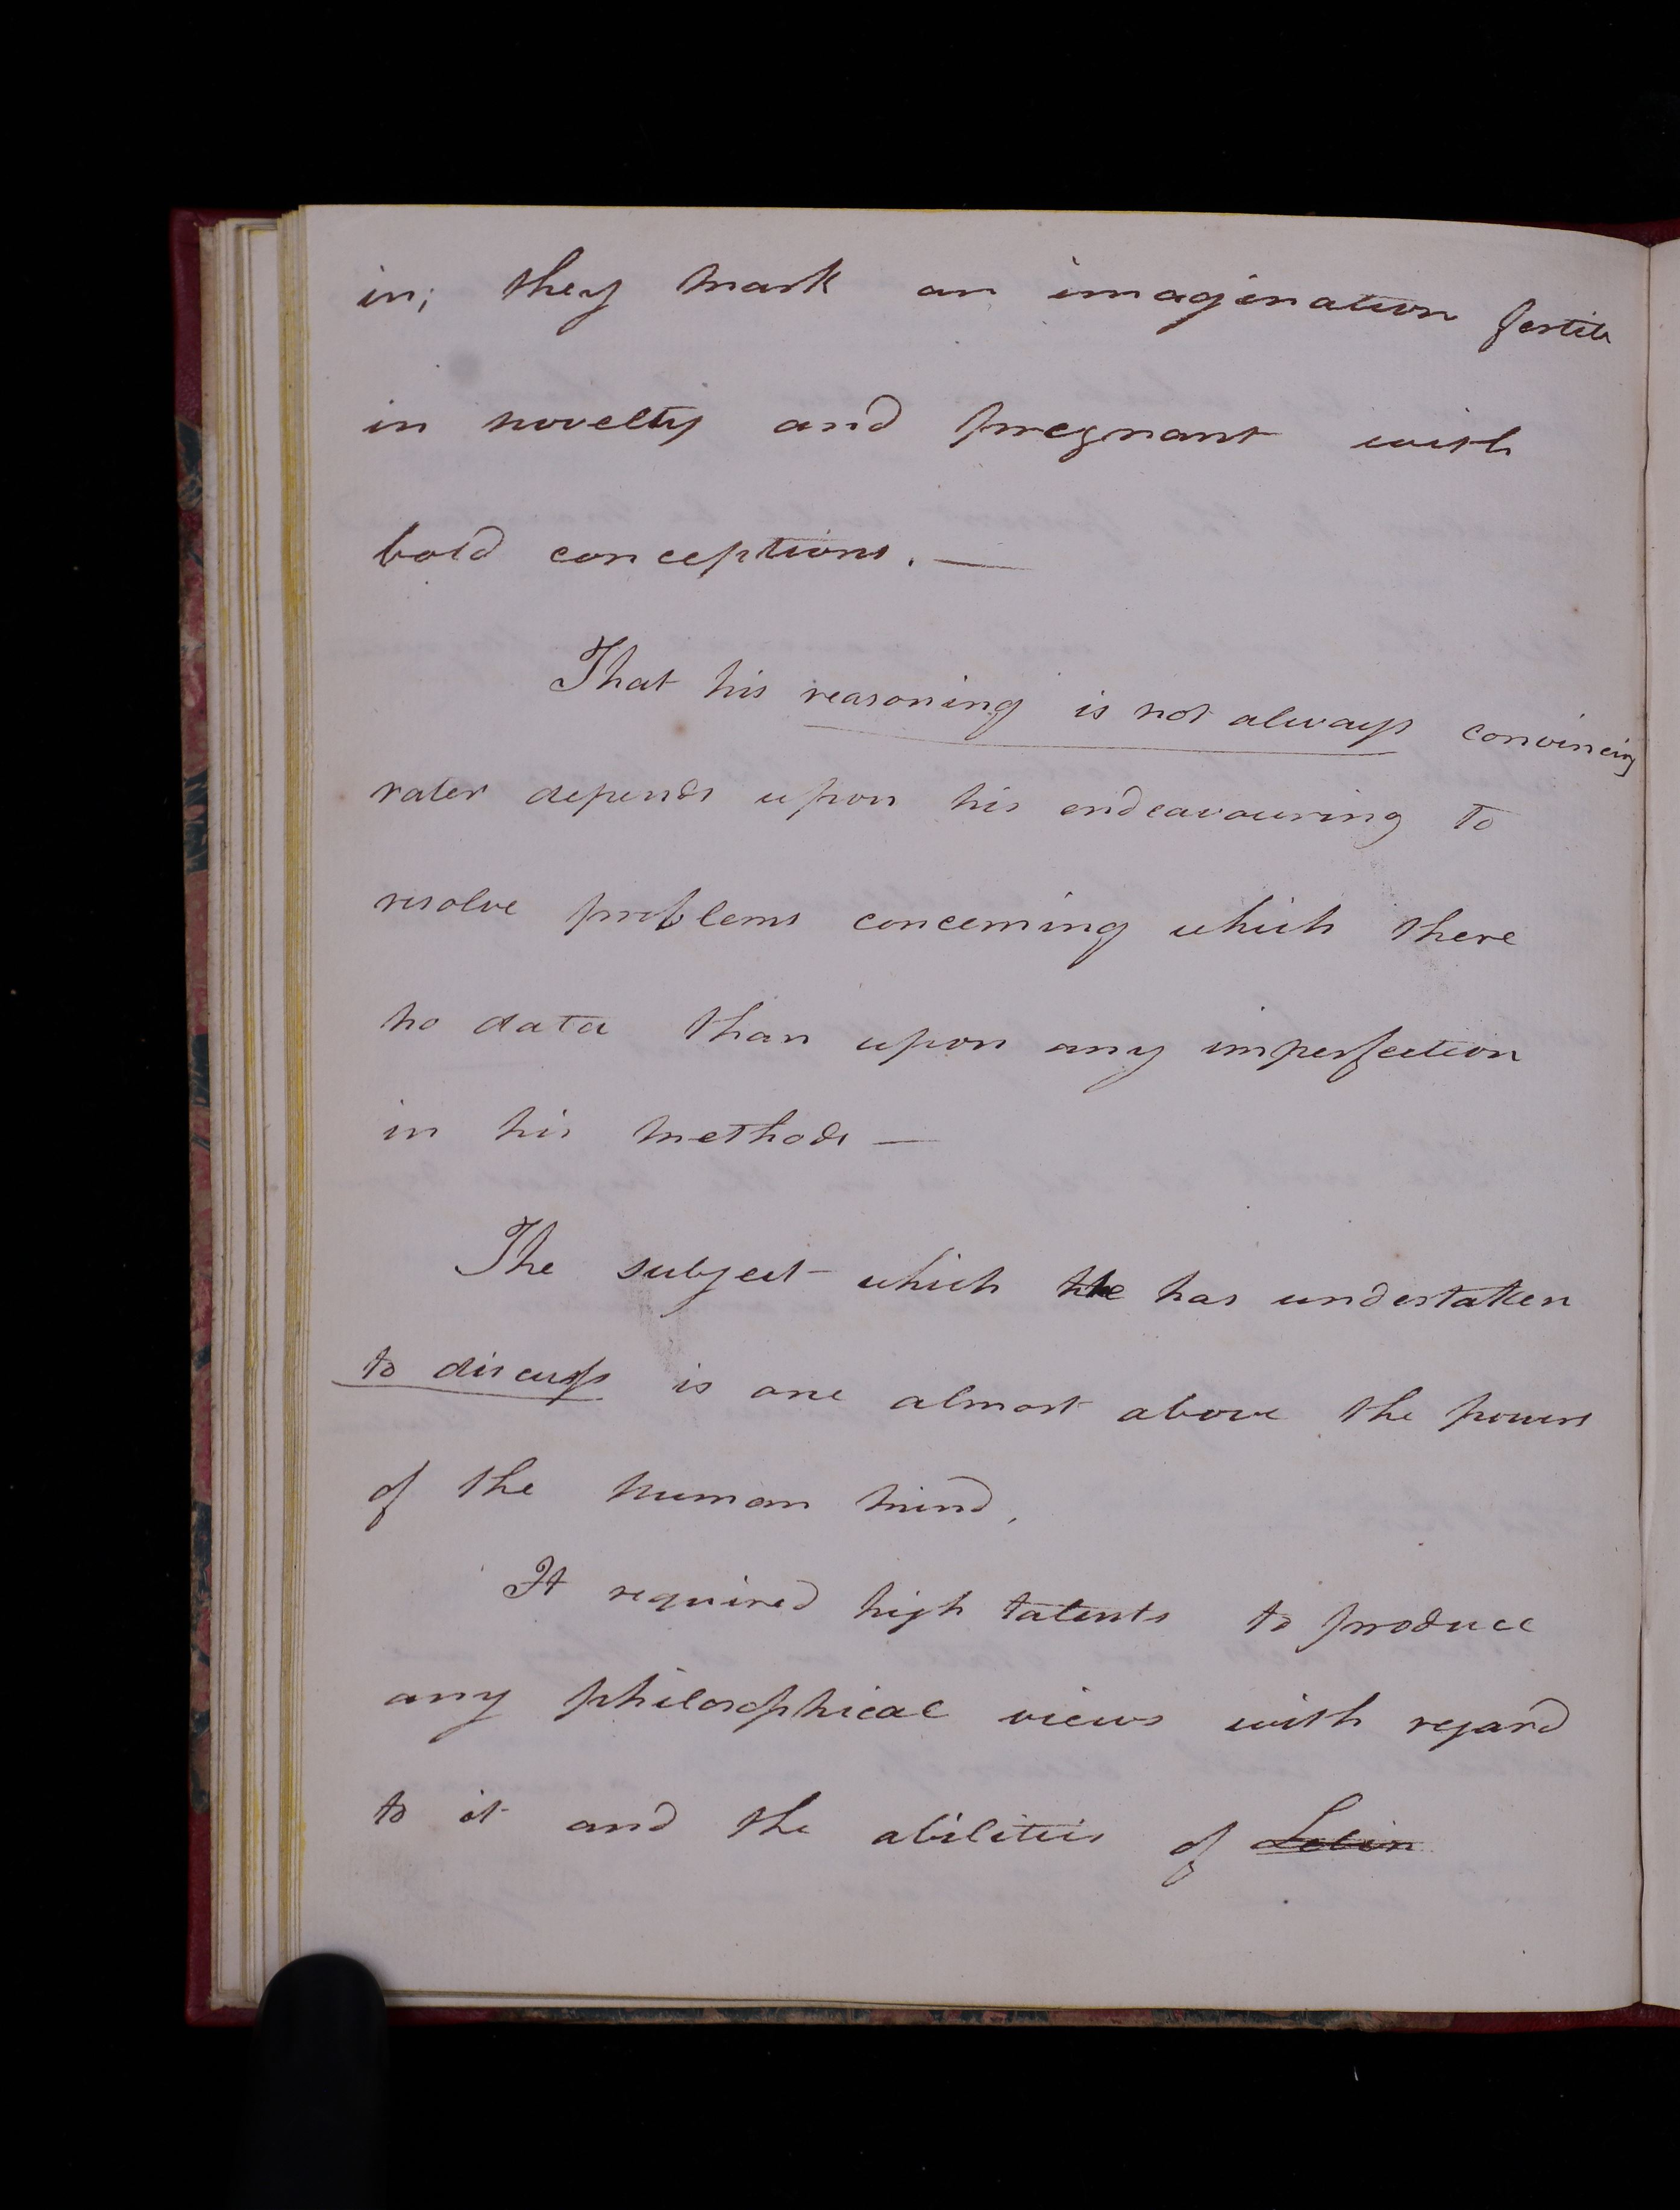 in; they mark an imagination fertile
in novelty and pregnant with
bold conceptions. —
That his reasoning is not always convincing
rater depends upon his endeavouring to
resolve problems concerning which there
no data than upon any imperfection
in his methods —
The subject which he has undertaken
to discuss is one almost above the powers
of the human mind.
It required high talents to produce
any philosophical views with regard
to it and the abilities of